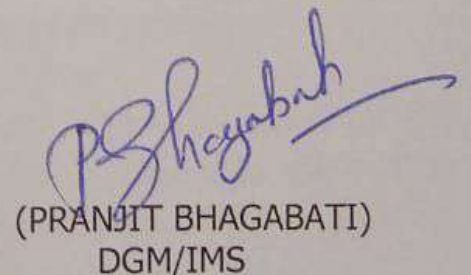 P Bhagabati
(PRANJIT BHAGABATI)
DGM/IMS